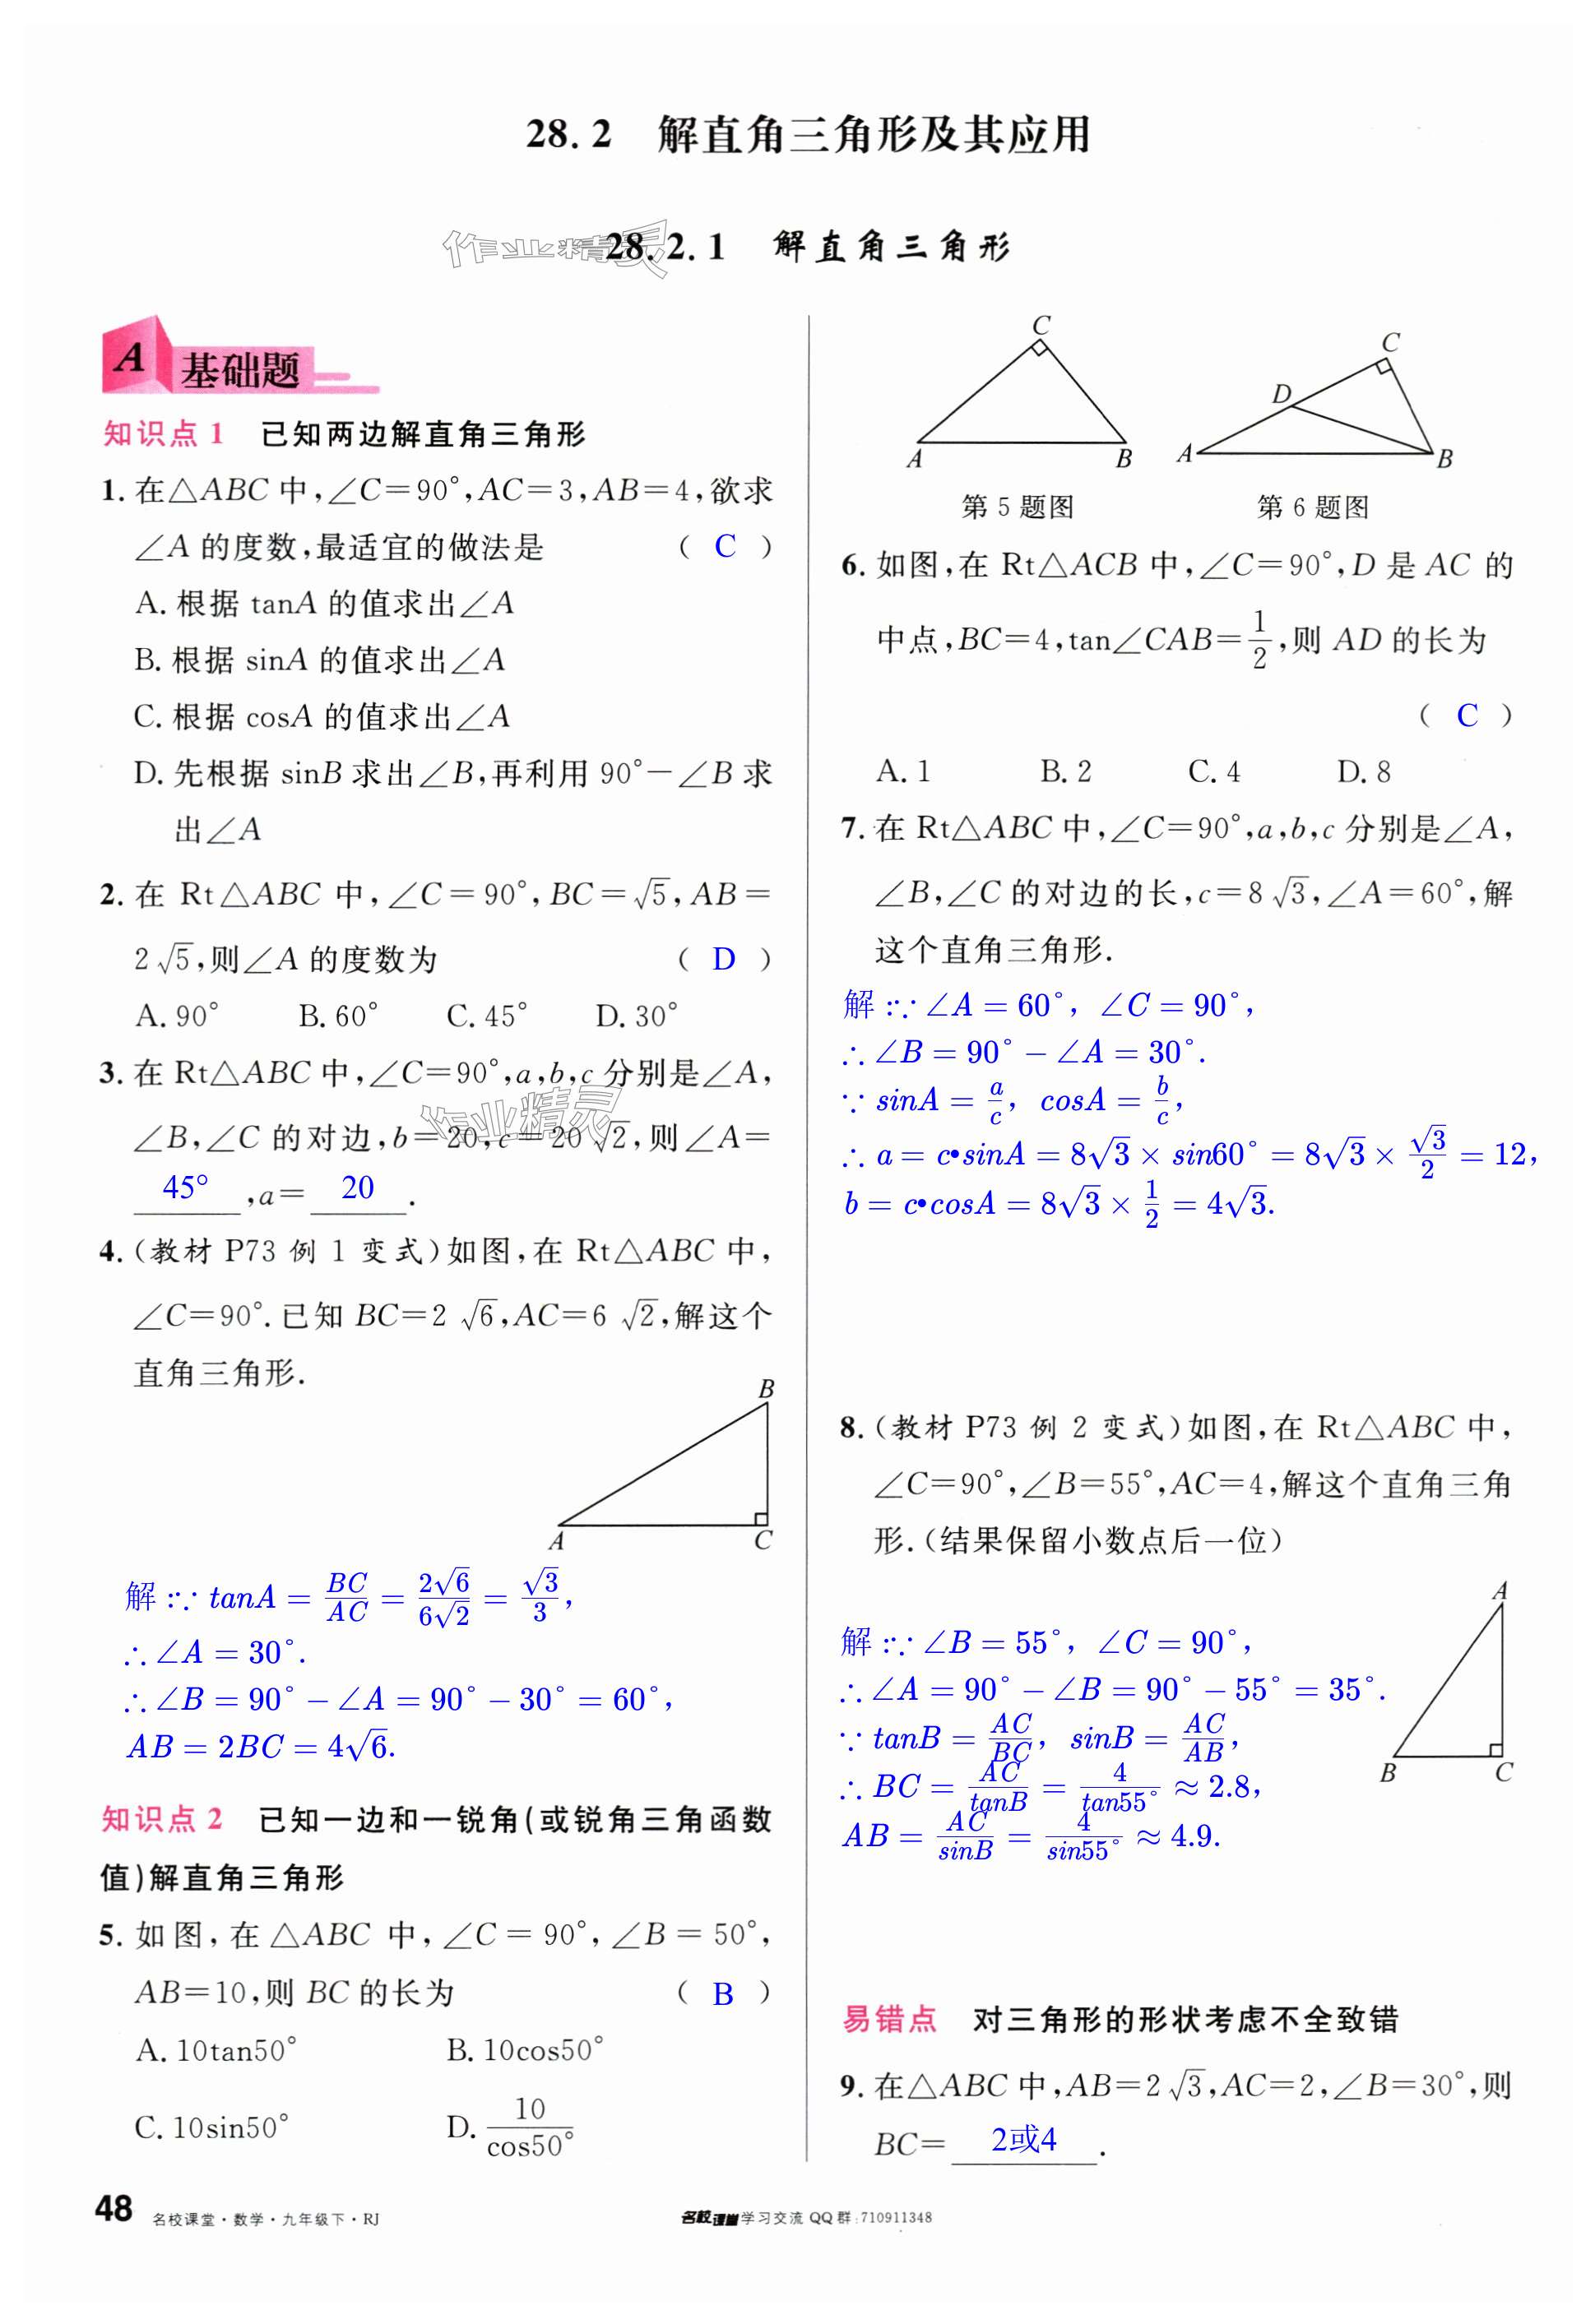 28.2 解直角三角形及其应用
作业精灵
28.2.1 解直角三角形
A 基础题
知识点1 已知两边解直角三角形
1.在△ABC中,∠C=90°,AC=3,AB=4,欲求
∠A的度数,最适宜的做法是 ( C )
A.根据tanA的值求出∠A
B.根据sinA的值求出∠A
C.根据cosA的值求出∠A
D.先根据sinB求出∠B,再利用90°-∠B求
出∠A
2.在Rt△ABC中,∠C=90°,BC=√5,AB=
2√5,则∠A的度数为 ( D )
A.90° B.60° C.45° D.30°
3.在Rt△ABC中,∠C=90°,a,b,c分别是∠A,
作业精灵
∠B,∠C的对边,b=20,c=20√2,则∠A=
45° ,a= 20 .
4.(教材P73例1变式)如图,在Rt△ABC中,
∠C=90°.已知BC=2√6,AC=6√2,解这个
直角三角形.
B
A C
解:∵tanA=BC/AC=2√6/6√2=√3/3,
∴∠A=30°.
∴∠B=90°-∠A=90°-30°=60°,
AB=2BC=4√6.
知识点2 已知一边和一锐角(或锐角三角函数
值)解直角三角形
5.如图,在△ABC中,∠C=90°,∠B=50°,
AB=10,则BC的长为 ( B )
A.10tan50° B.10cos50°
C.10sin50° D.10/cos50°
C
A B
第5题图
C
D
A B
第6题图
6.如图,在Rt△ACB中,∠C=90°,D是AC的
中点,BC=4,tan∠CAB=1/2,则AD的长为
( C )
A.1 B.2 C.4 D.8
7.在Rt△ABC中,∠C=90°,a,b,c分别是∠A,
∠B,∠C的对边的长,c=8√3,∠A=60°,解
这个直角三角形.
解:∵∠A=60°,∠C=90°,
∴∠B=90°-∠A=30°.
∵sinA=a/c,cosA=b/c,
∴a=c•sinA=8√3×sin60°=8√3×√3/2=12,
b=c•cosA=8√3×1/2=4√3.
8.(教材P73例2变式)如图,在Rt△ABC中,
∠C=90°,∠B=55°,AC=4,解这个直角三角
形.(结果保留小数点后一位)
A
B C
解:∵∠B=55°,∠C=90°,
∴∠A=90°-∠B=90°-55°=35°.
∵tanB=AC/BC,sinB=AC/AB,
∴BC=AC/tanB=4/tan55°≈2.8,
AB=AC/sinB=4/sin55°≈4.9.
易错点 对三角形的形状考虑不全致错
9.在△ABC中,AB=2√3,AC=2,∠B=30°,则
BC= 2或4 .
48 名校课堂·数学·九年级下·RJ
名校课堂学习交流QQ群:710911348